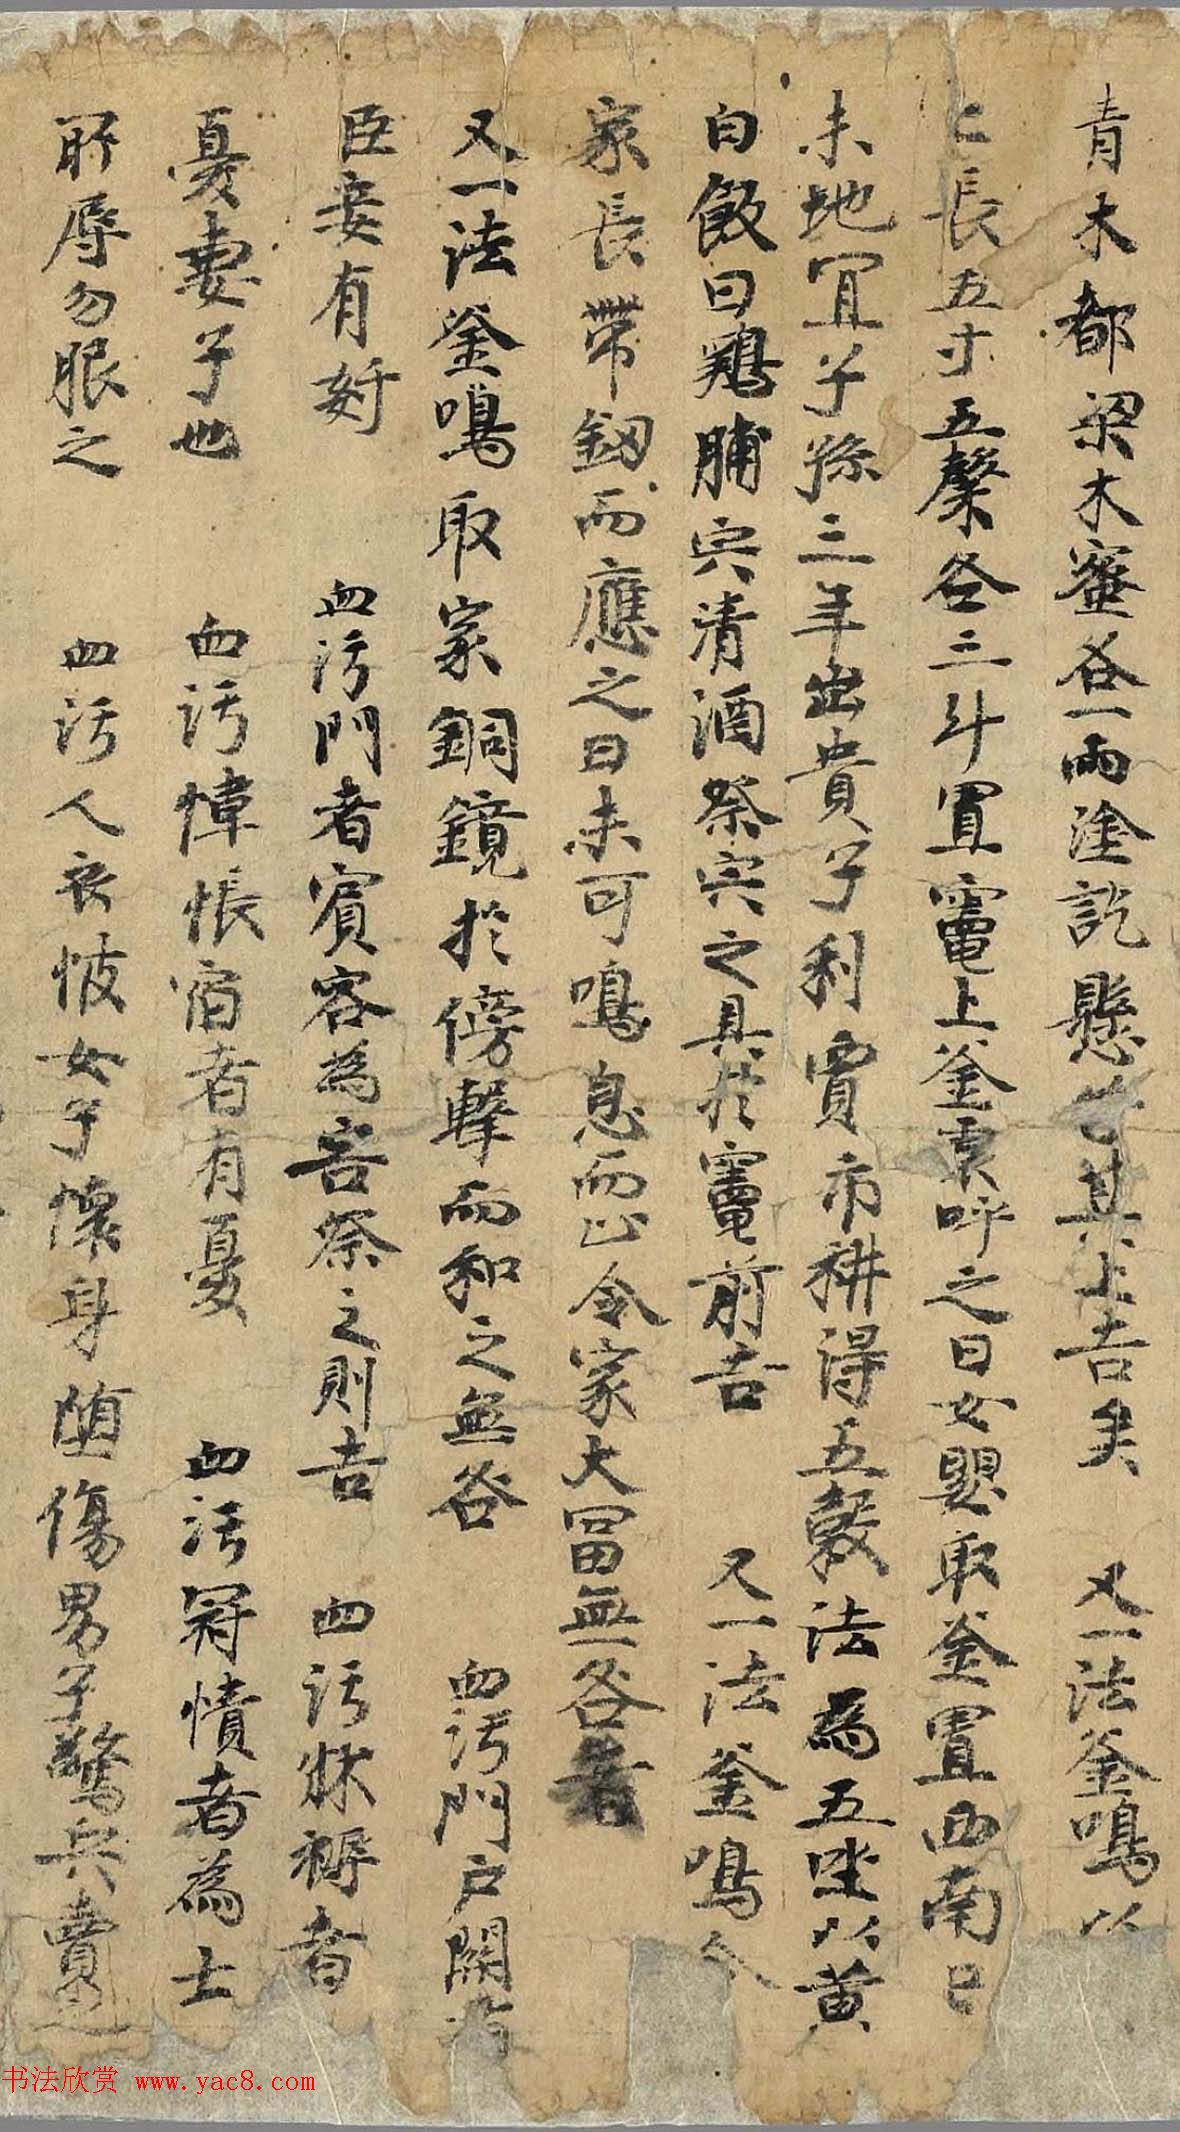 青木都梁木蜜各一兩塗訖懸其上吉矣 又一法釜鳴以
上長五寸五檠各三斗置竈上釜裏呼之曰女嬰取釜置西南
未地宜子孫三年出貴子利賈市耕得五穀法為五坐以黄
白飯白鷄脯肉清酒祭肉之具於竈前吉 又一法釜鳴令
家長帶釰而應之曰未可鳴息而止令家大冨無咎
又一法釜鳴取家銅鏡於傍擊而和之無咎 血污門户關者
臣妾有奸 血污門者賓客為害祭之則吉 血污牀褥者
憂妻子也 血污幃帳宿者有憂 血污冠幘者為士
所辱勿服之 血污人衣帔女子懷身墮傷男子驚兵賣之
书法欣赏 www.yac8.com